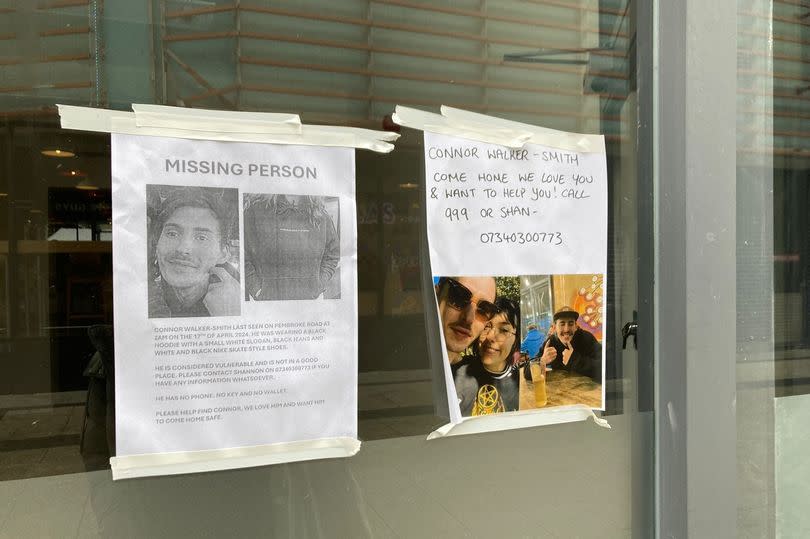 MISSING PERSON
CONNOR WALKER-SMITH LAST SEEN ON PEMBROKE ROAD AT
2AM ON THE 17TH OF APRIL 2024. HE WAS WEARING A BLACK
HOODIE WITH A SMALL WHITE SLOGAN, BLACK JEANS AND
WHITE AND BLACK NIKE SKATE STYLE SHOES.
HE IS CONSIDERED VULNERABLE AND IS NOT IN A GOOD
PLACE. PLEASE CONTACT SHANNON ON 07340300773 IF YOU
HAVE ANY INFORMATION WHATSOEVER.
HE HAS NO PHONE, NO KEY AND NO WALLET.
PLEASE HELP FIND CONNOR, WE LOVE HIM AND WANT HIM
TO COME HOME SAFE.
CONNOR WALKER - SMITH
COME HOME WE LOVE YOU
& WANT TO HELP YOU! CALL
999 OR SHAN-
07340300773